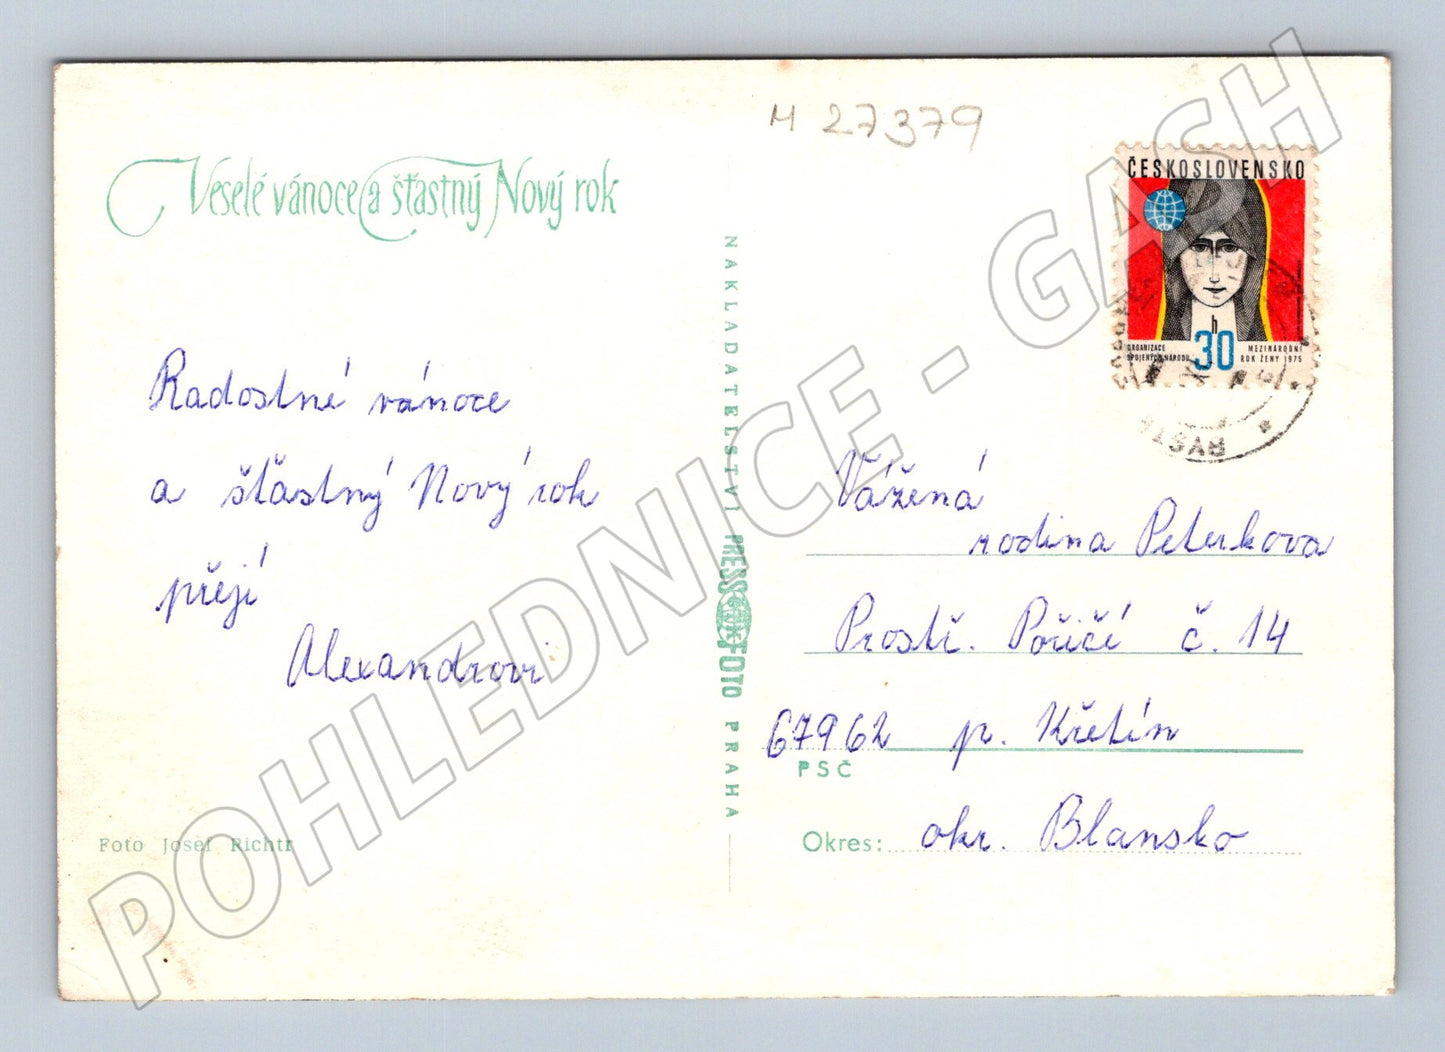 M 27379
Veselé vánoce a šťastný Nový rok
Radostné vánoce
a šťastný Nový rok
přejí
Alexandrovi
Foto Josef Richtr
NAKLADATELSTVÍ PRESSFOTO PRAHA
ČESKOSLOVENSKO
h
30
ORGANIZACE
SPOJENÝCH NÁRODŮ
MEZINÁRODNÍ
ROK ŽENY 1975
Vážená
rodina Peterkova
Prostř. Poříčí č. 14
67962 p. Křetín
PSČ
Okres: okr. Blansko
POHLEDNICE - GASH